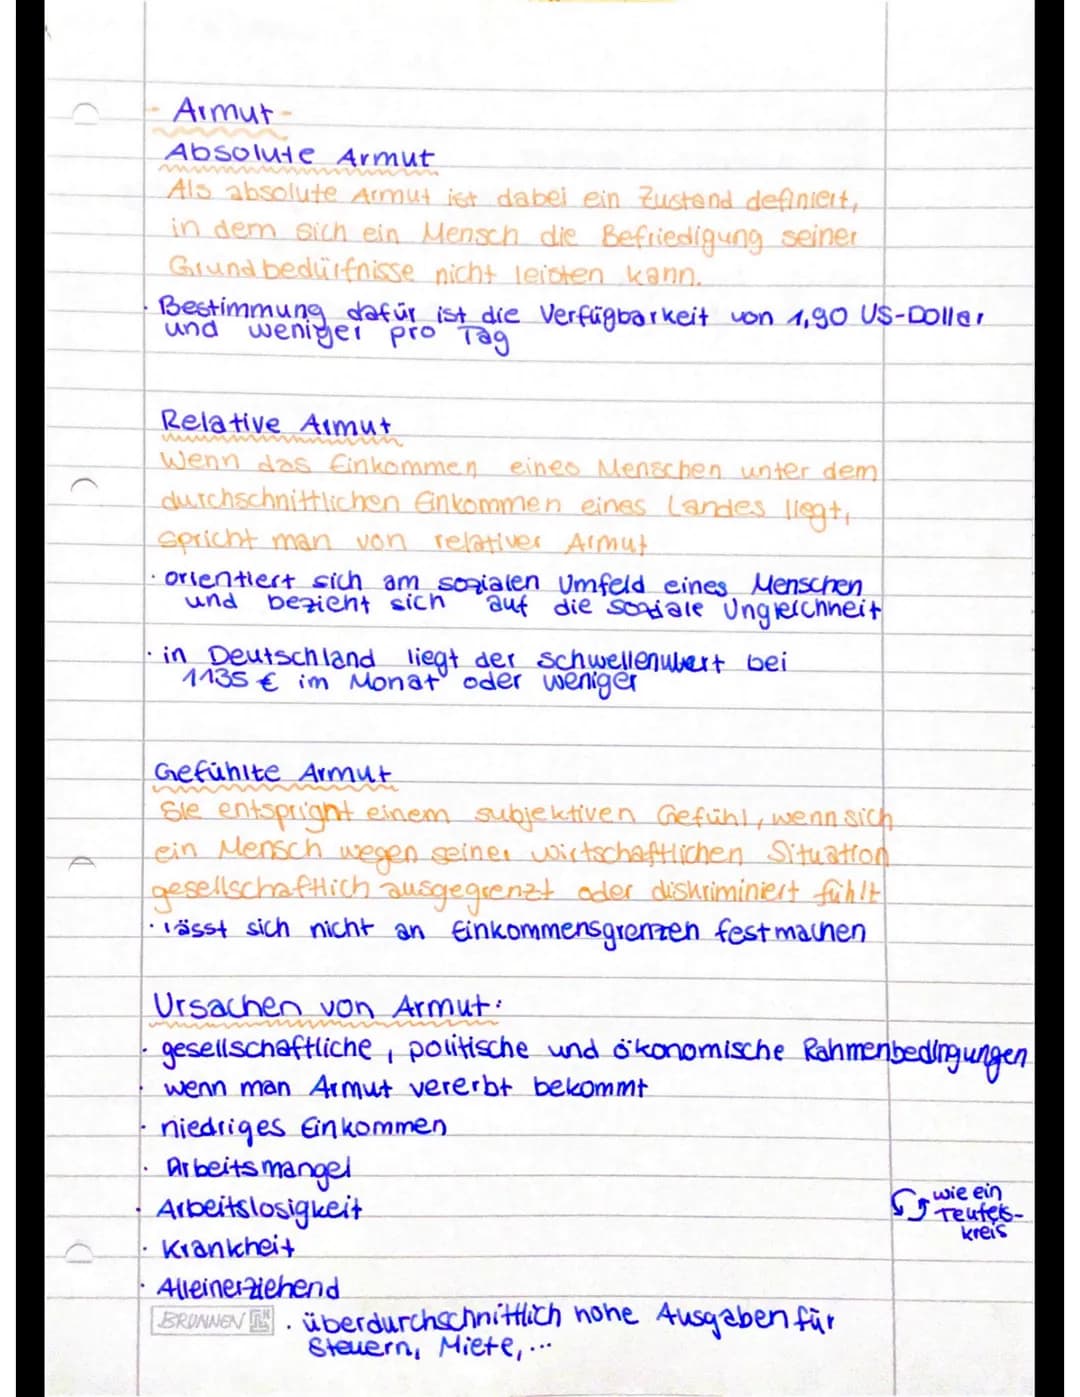 - Armut -
Absolute Armut
Als absolute Armut ist dabei ein Zustand definiert,
in dem sich ein Mensch die Befriedigung seiner
Grundbedürfnisse nicht leisten kann.
· Bestimmung dafür ist die Verfügbarkeit von 1,90 US-Dollar
und weniger pro Tag
Relative Armut
Wenn das Einkommen eines Menschen unter dem
durchschnittlichen Einkommen eines Landes liegt,
spricht man von relativer Armut
· orientiert sich am sozialen Umfeld eines Menschen
und bezieht sich auf die soziale Ungleichheit
· in Deutschland liegt der Schwellenwert bei
1135 € im Monat oder weniger
Gefühlte Armut
Sie entspright einem subjektiven Gefühl, wenn sich
ein Mensch wegen seiner wirtschaftlichen Situation
gesellschaftlich ausgegrenzt oder diskriminiert fühlt
· lässt sich nicht an Einkommensgrenzen festmachen
Ursachen von Armut:
· gesellschaftliche, politische und ökonomische Rahmenbedingungen
· wenn man Armut vererbt bekommt
· niedriges Einkommen
· Arbeitsmangel
· Arbeitslosigkeit
wie ein
Teufels-
kreis
· Krankheit
· Alleinerziehend
BRUNNEN
· überdurchschnittlich hohe Ausgaben für
Steuern, Miete, ...